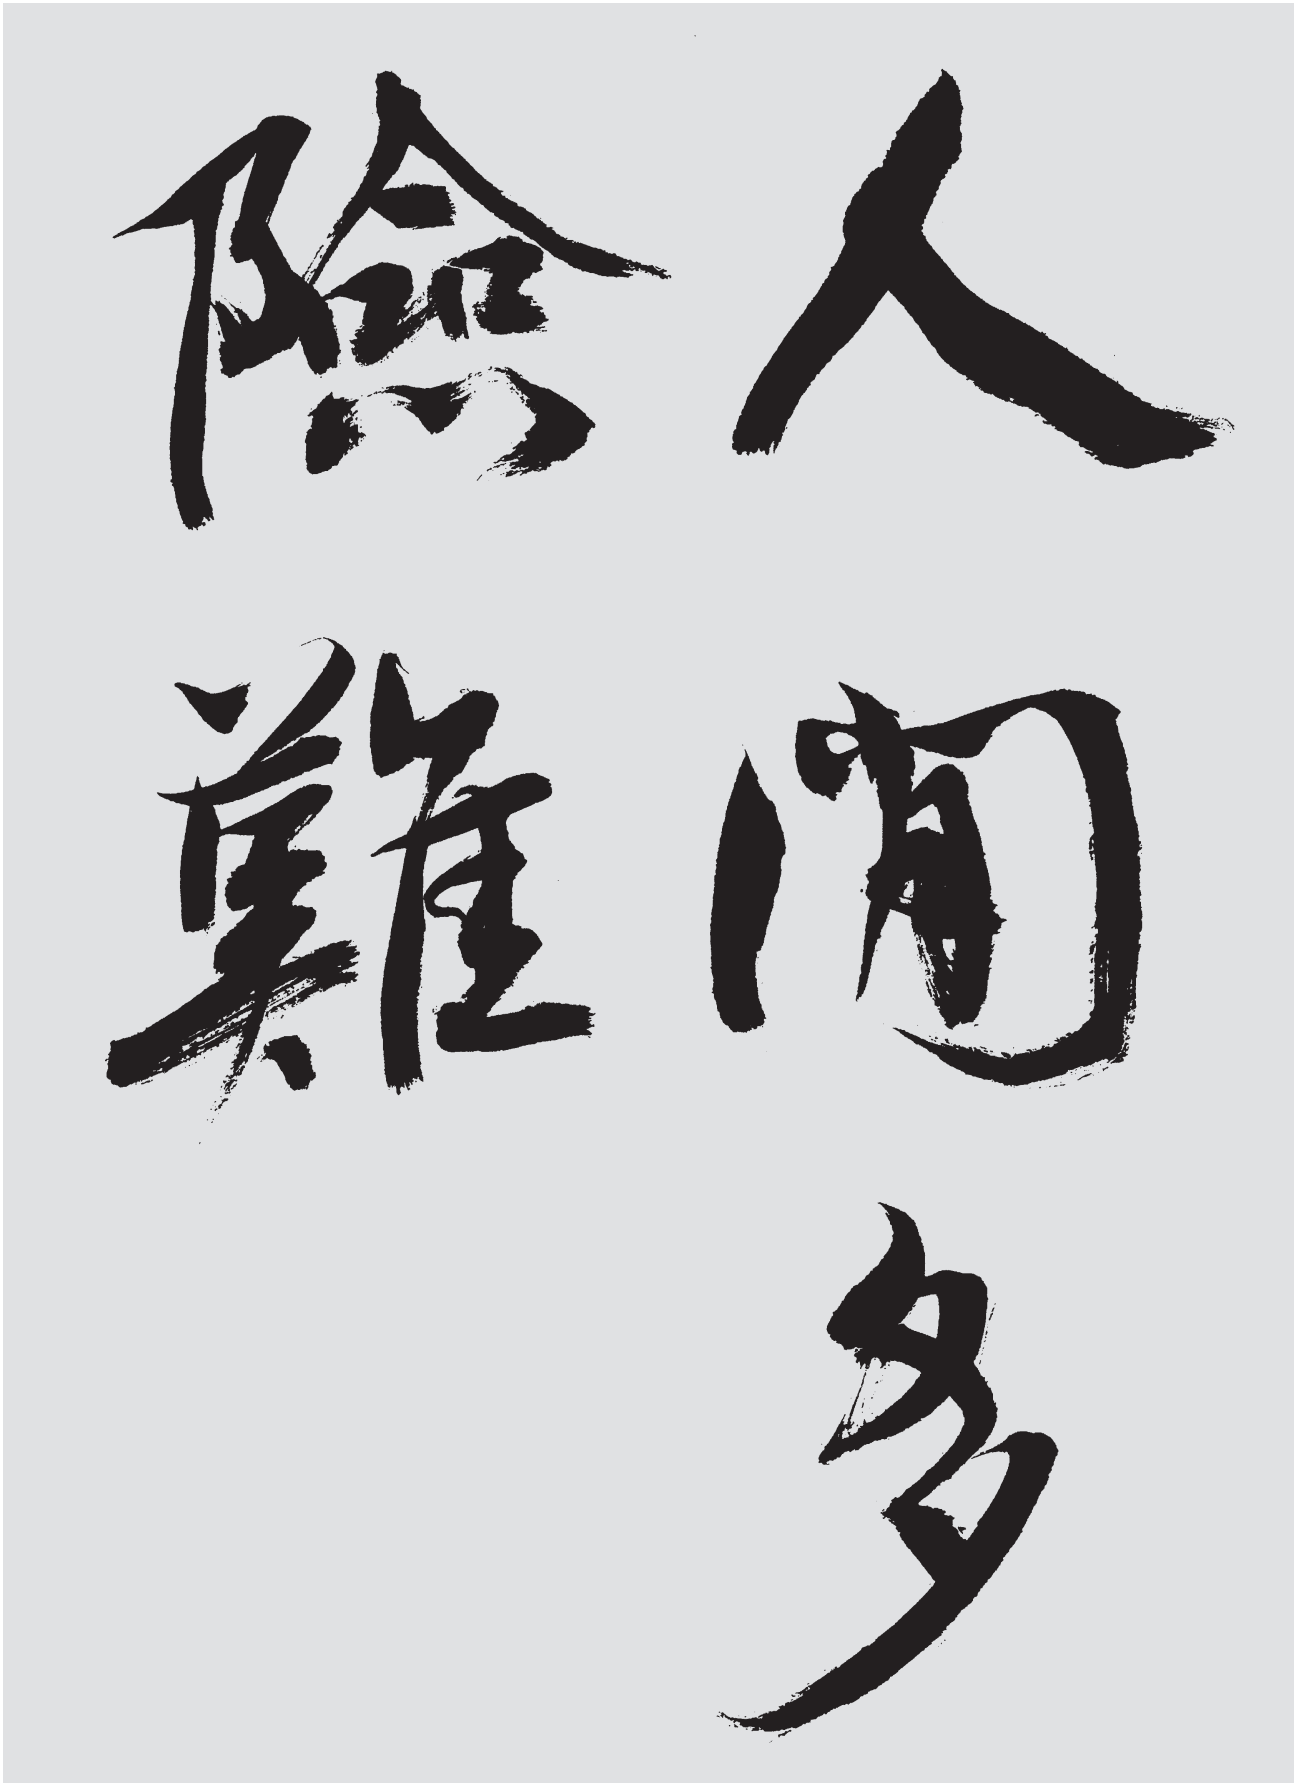 人間多
險難